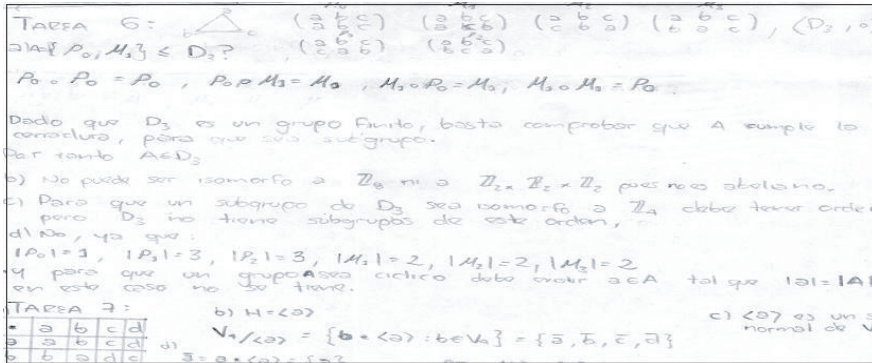 TAREA 6: (a b c / a b c) (a b c / a c b) (a b c / c b a) (a b c / b a c), <D₃, ∘
a) A{P₀, M₃} ≤ D₃? (a b c / c a b) (a b c / b c a)
P₀ ∘ P₀ = P₀ , P₀ ∘ M₃ = M₃ , M₃ ∘ P₀ = M₃, M₃ ∘ M₃ = P₀
Dado que D₃ es un grupo finito, basta comprobar que A cumple la
cerradura, para que sea subgrupo.
Por tanto A≤D₃
b) No puede ser isomorfo a ℤ₈ ni a ℤ₂ × ℤ₂ × ℤ₂ pues no es abeliano.
c) Para que un subgrupo de D₃ sea isomorfo a ℤ₄ debe tener orden
pero D₃ no tiene subgrupos de este orden,
d) No, ya que:
|P₀|=1, |P₁|=3, |P₂|=3, |M₁|=2, |M₂|=2, |M₃|=2
y para que un grupo A sea cíclico debe existir a∈A tal que |a|=|A|
en este caso no se tiene.
TAREA 7: b) H=<a> c) <a> es un
• a b c d V₄/<a> = {b • <a> : b∈V₄} = {ā, b̄, c̄, d̄} normal de V
a a b c d d)
b b a d c ā = a • <a> = {a